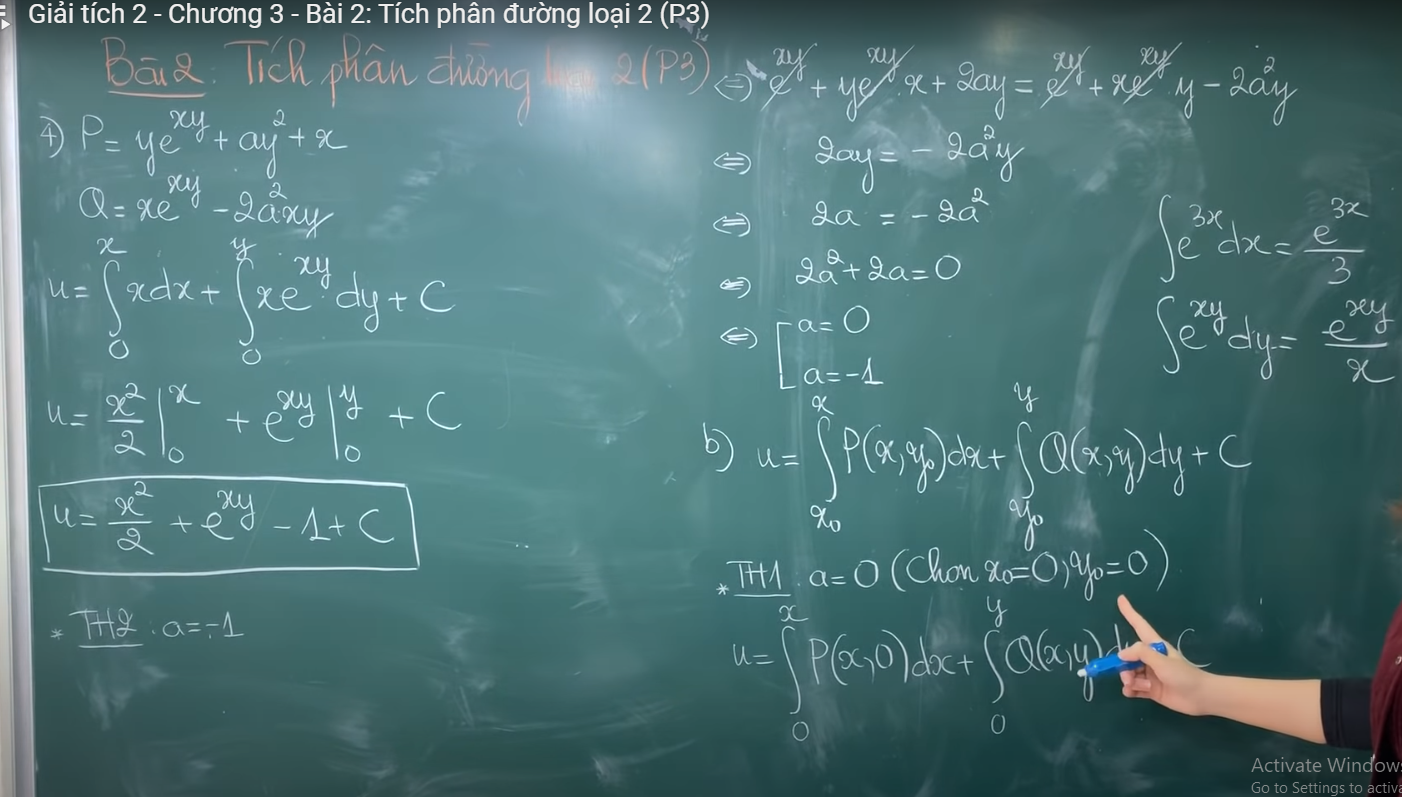 Giải tích 2 - Chương 3 - Bài 2: Tích phân đường loại 2 (P3)
Bài 2: Tích phân đường 2 (P3)
4) P = ye^{xy} + ay² + x
Q = xe^{xy} - 2a²xy
u = ∫₀ˣ xdx + ∫₀ʸ xe^{xy} dy + C
u = x²/2 |₀ˣ + e^{xy} |₀ʸ + C
u = x²/2 + e^{xy} - 1 + C
* TH2 : a = -1
⇔ e^{xy} + ye^{xy}.x + 2ay = e^{xy} + xe^{xy}.y - 2a²y
⇔ 2ay = - 2a²y
⇔ 2a = - 2a²
⇔ 2a² + 2a = 0
⇔ [ a = 0
a = -1
b) u = ∫_{x₀}^{x} P(x,y₀)dx + ∫_{y₀}^{y} Q(x,y)dy + C
* TH1 : a = 0 (Chọn x₀=0, y₀=0)
u = ∫₀ˣ P(x,0)dx + ∫₀ʸ Q(x,y) C
∫e^{3x}dx = e^{3x}/3
∫e^{xy}dy = e^{xy}/x
Activate Windows
Go to Settings to activa